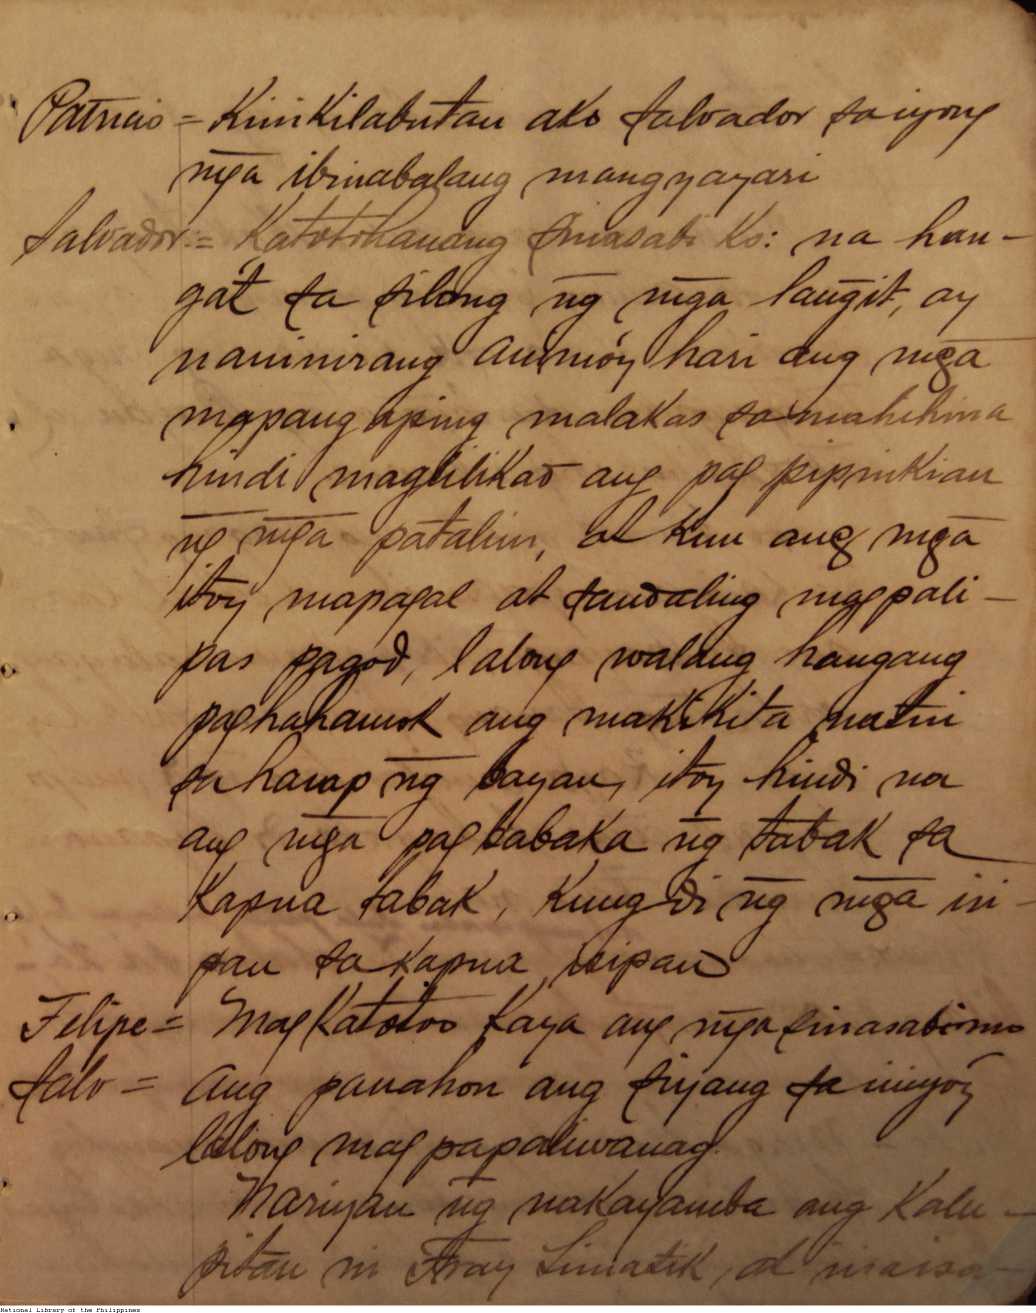 Patricio = Kinikilabutan ako Salvador sa iyong
m̃ga ibinabalang mangyayari
Salvador = Katotohanang sinasabi ko: na han-
gat sa silong ng̃ m̃ga lang̃it, ay
naninirang animóy hari ang m̃ga
mapang aping malakas sa mahihina
hindi maglilikad ang pag pipinkian
ng̃ m̃ga patalim, at kun ang m̃ga
itoy mapagal at sandaling magpali-
pas pagod, lalong walang hangang
paghahamok ang makikita natin
sa harap ng̃ bayan, itoy hindi na
ang m̃ga pagbabaka ng̃ tabak sa
kapua tabak, kung di ng̃ m̃ga ii-
pan sa kapua iipan
Felipe = Magkatotoo kaya ang m̃ga sinasabi mo
Salv = Ang panahon ang siyang sa iniyóy
lalong mag papaliwanag.
Nariyan ng̃ nakayamba ang kalu-
pitan ni Fray Limatik, di maisa-
National Library of the Philippines